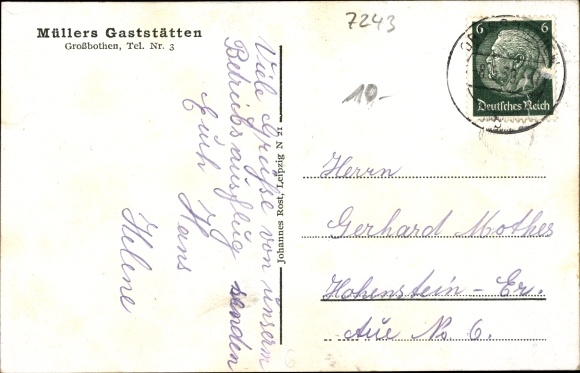 Müllers Gaststätten
Großbothen, Tel. Nr. 3
7243
10.-
6 6
Deutsches Reich
Viele Grüße von unserm
Betriebsausflug senden
Euch Hans
Helene
Johannes Rost, Leipzig N 21
Herrn
Gerhard Mothes
Hohenstein-Er.
Aue No. 6.